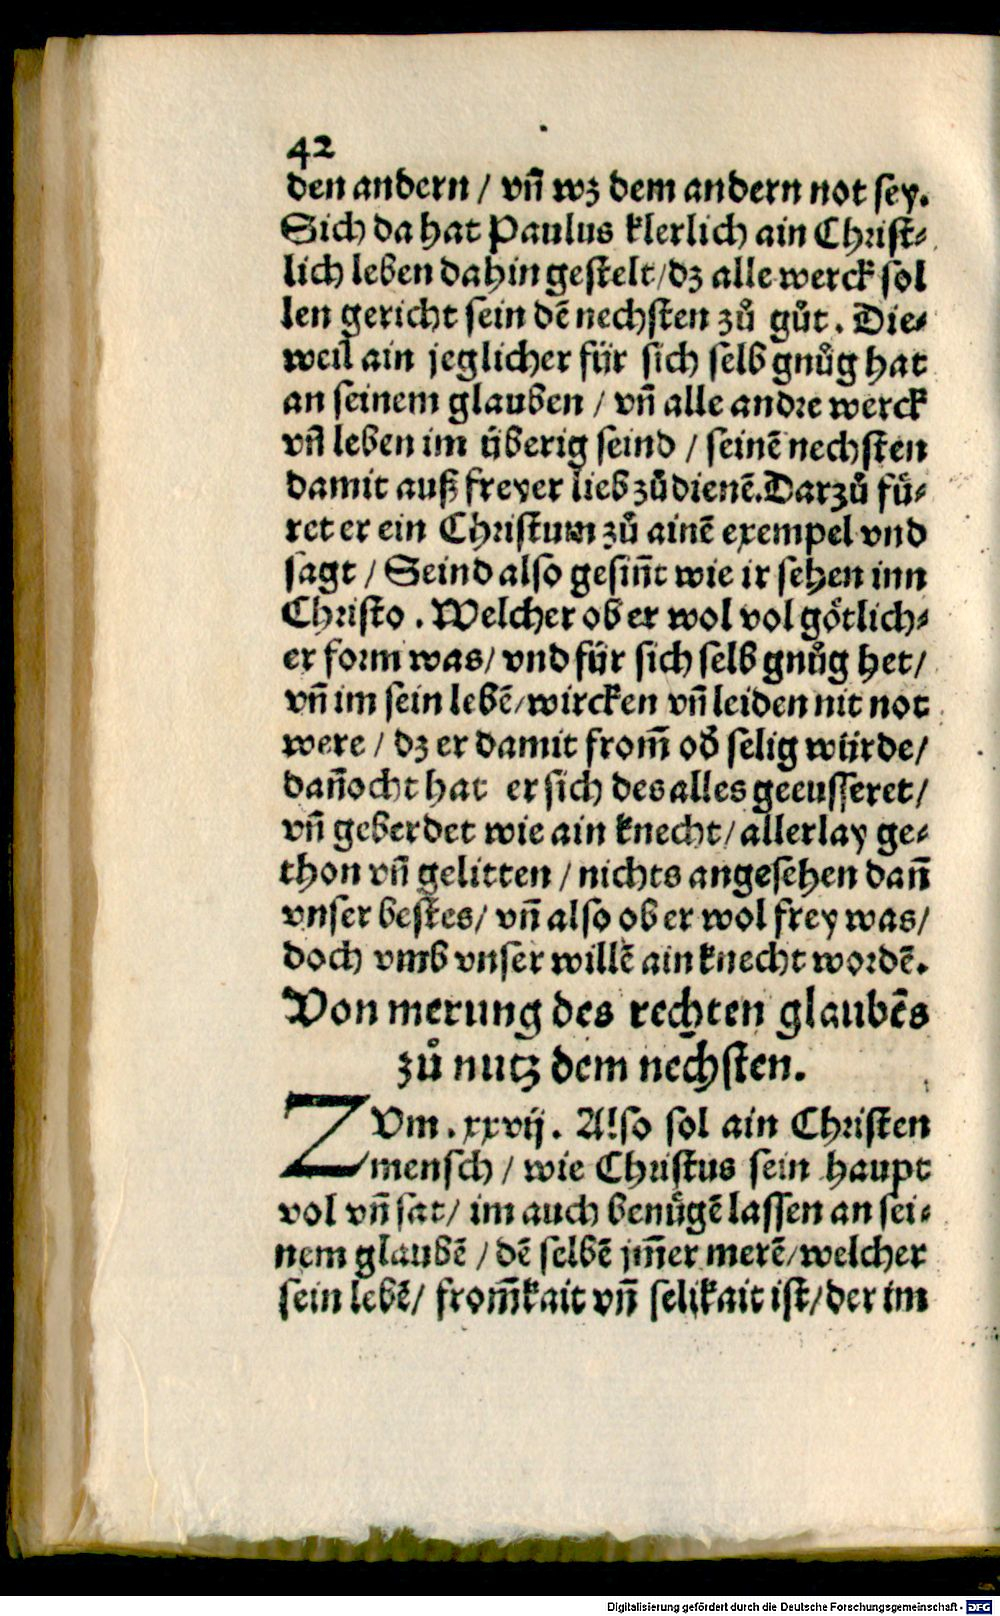 42
den andern / vñ wz dem andern not sey.
Sich da hat Paulus klerlich ain Christ⸗
lich leben dahin gestelt/dz alle werck sol
len gericht sein dē nechsten zů gůt. Die⸗
weil ain jeglicher für sich selb gnůg hat
an seinem glauben / vñ alle andre werck
vñ leben im überig seind / seinē nechsten
damit auß freyer lieb zůdienē. Darzů fü⸗
ret er ein Christum zů ainē exempel vnd
sagt / Seind also gesiñt wie ir sehen inn
Christo. Welcher ob er wol vol götlich⸗
er form was/ vnd für sich selb gnůg het/
vñ im sein lebē/wircken vñ leiden nit not
were / dz er damit from̄ od̄ selig würde/
dañocht hat er sich des alles geeusseret/
vñ geberdet wie ain knecht/ allerlay ge⸗
thon vñ gelitten / nichts angesehen dañ
vnser bestes/ vñ also ob er wol frey was/
doch vmb vnser willē ain knecht wordē.
Von merung des rechten glaubēs
zů nutz dem nechsten.
ZVm. xxvij. Also sol ain Christen
mensch / wie Christus sein haupt
vol vñ sat/ im auch benügē lassen an sei⸗
nem glaubē / dē selbē jm̄er merē/welcher
sein lebē/ from̄kait vñ selikait ist/der im
Digitalisierung gefördert durch die Deutsche Forschungsgemeinschaft - DFG